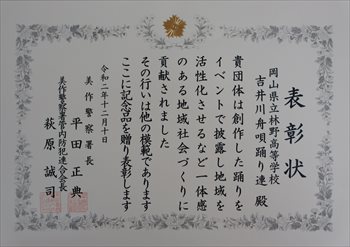 表彰状
岡山県立林野高等学校
吉井川舟唄踊り連 殿
貴団体は創作した踊りを
イベントで披露し地域を
活性化させるなど一体感
のある地域社会づくりに
貢献されました
その行いは他の模範であります
ここに記念品を贈り表彰します
令和二年十二月十日
美作警察署長
平田正典
美作警察署管内防犯連合会長
萩原誠司